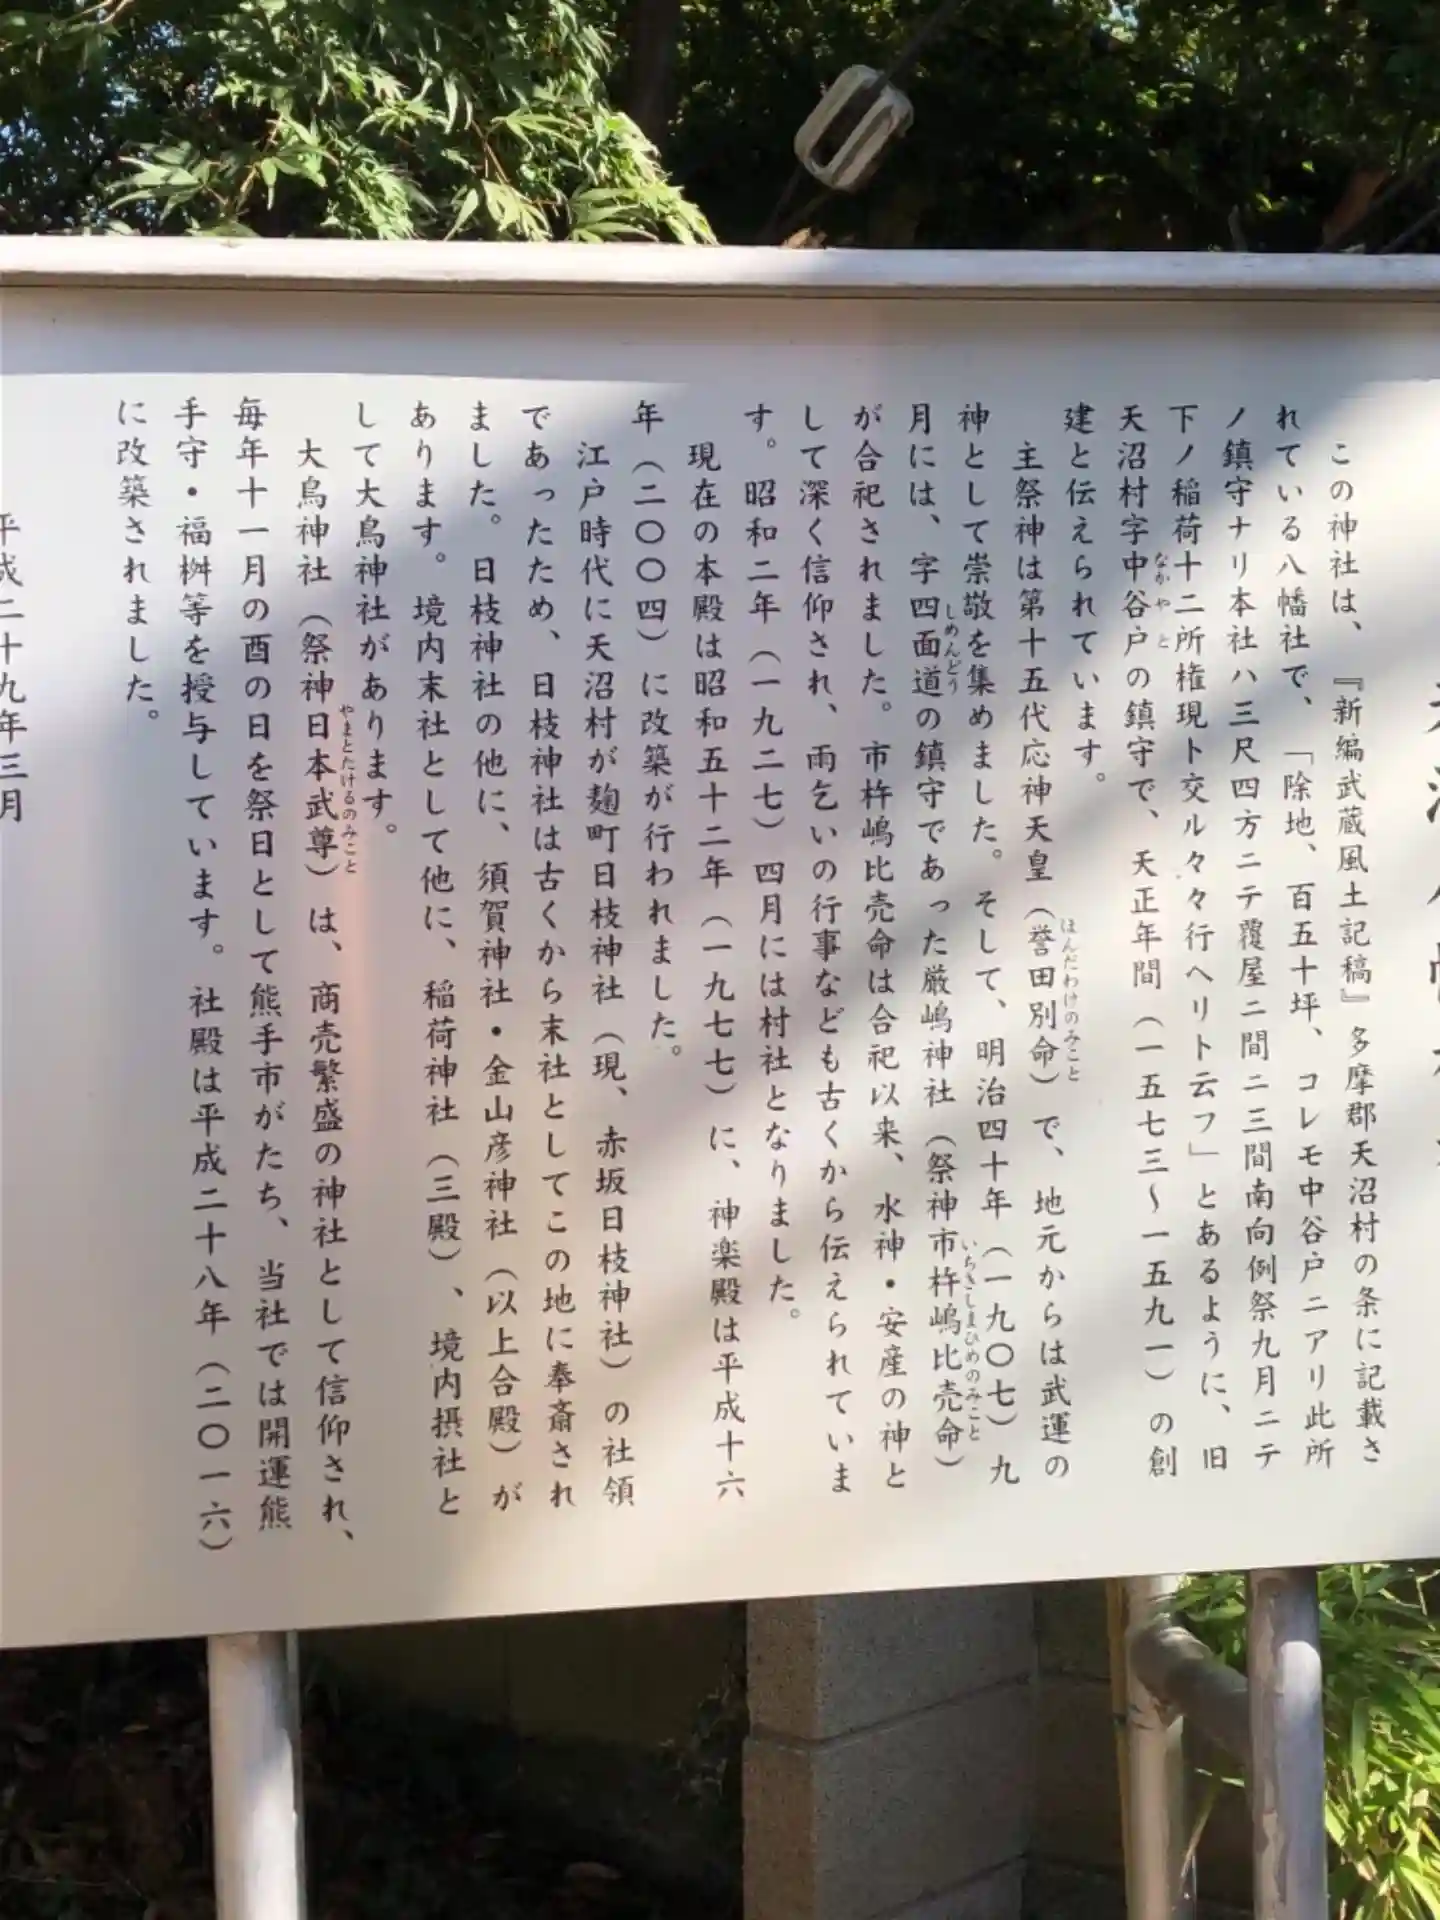 この神社は、『新編武蔵風土記稿』多摩郡天沼村の条に記載さ
れている八幡社で、「除地、百五十坪、コレモ中谷戸ニアリ此所
ノ鎮守ナリ本社ハ三尺四方ニテ覆屋ニ間ニ三間南向例祭九月ニテ
下ノ稲荷十二所権現ト交ル々々行ヘリト云フ」とあるように、旧
天沼村字中谷戸の鎮守で、天正年間（一五七三〜一五九一）の創
なかやと
建と伝えられています。
主祭神は第十五代応神天皇（誉田別命）で、地元からは武運の
ほんだわけのみこと
神として崇敬を集めました。そして、明治四十年（一九〇七）九
月には、字四面道の鎮守であった厳嶋神社（祭神市杵嶋比売命）
しめんどう
いちきしまひめのみこと
が合祀されました。市杵嶋比売命は合祀以来、水神・安産の神と
して深く信仰され、雨乞いの行事なども古くから伝えられていま
す。昭和二年（一九二七）四月には村社となりました。
現在の本殿は昭和五十二年（一九七七）に、神楽殿は平成十六
年（二〇〇四）に改築が行われました。
江戸時代に天沼村が麹町日枝神社（現、赤坂日枝神社）の社領
であったため、日枝神社は古くから末社としてこの地に奉斎され
ました。日枝神社の他に、須賀神社・金山彦神社（以上合殿）が
あります。境内末社として他に、稲荷神社（三殿）、境内摂社と
して大鳥神社があります。
大鳥神社（祭神日本武尊）は、商売繁盛の神社として信仰され、
やまとたけるのみこと
毎年十一月の酉の日を祭日として熊手市がたち、当社では開運熊
手守・福桝等を授与しています。社殿は平成二十八年（二〇一六）
に改築されました。
平成二十九年三月